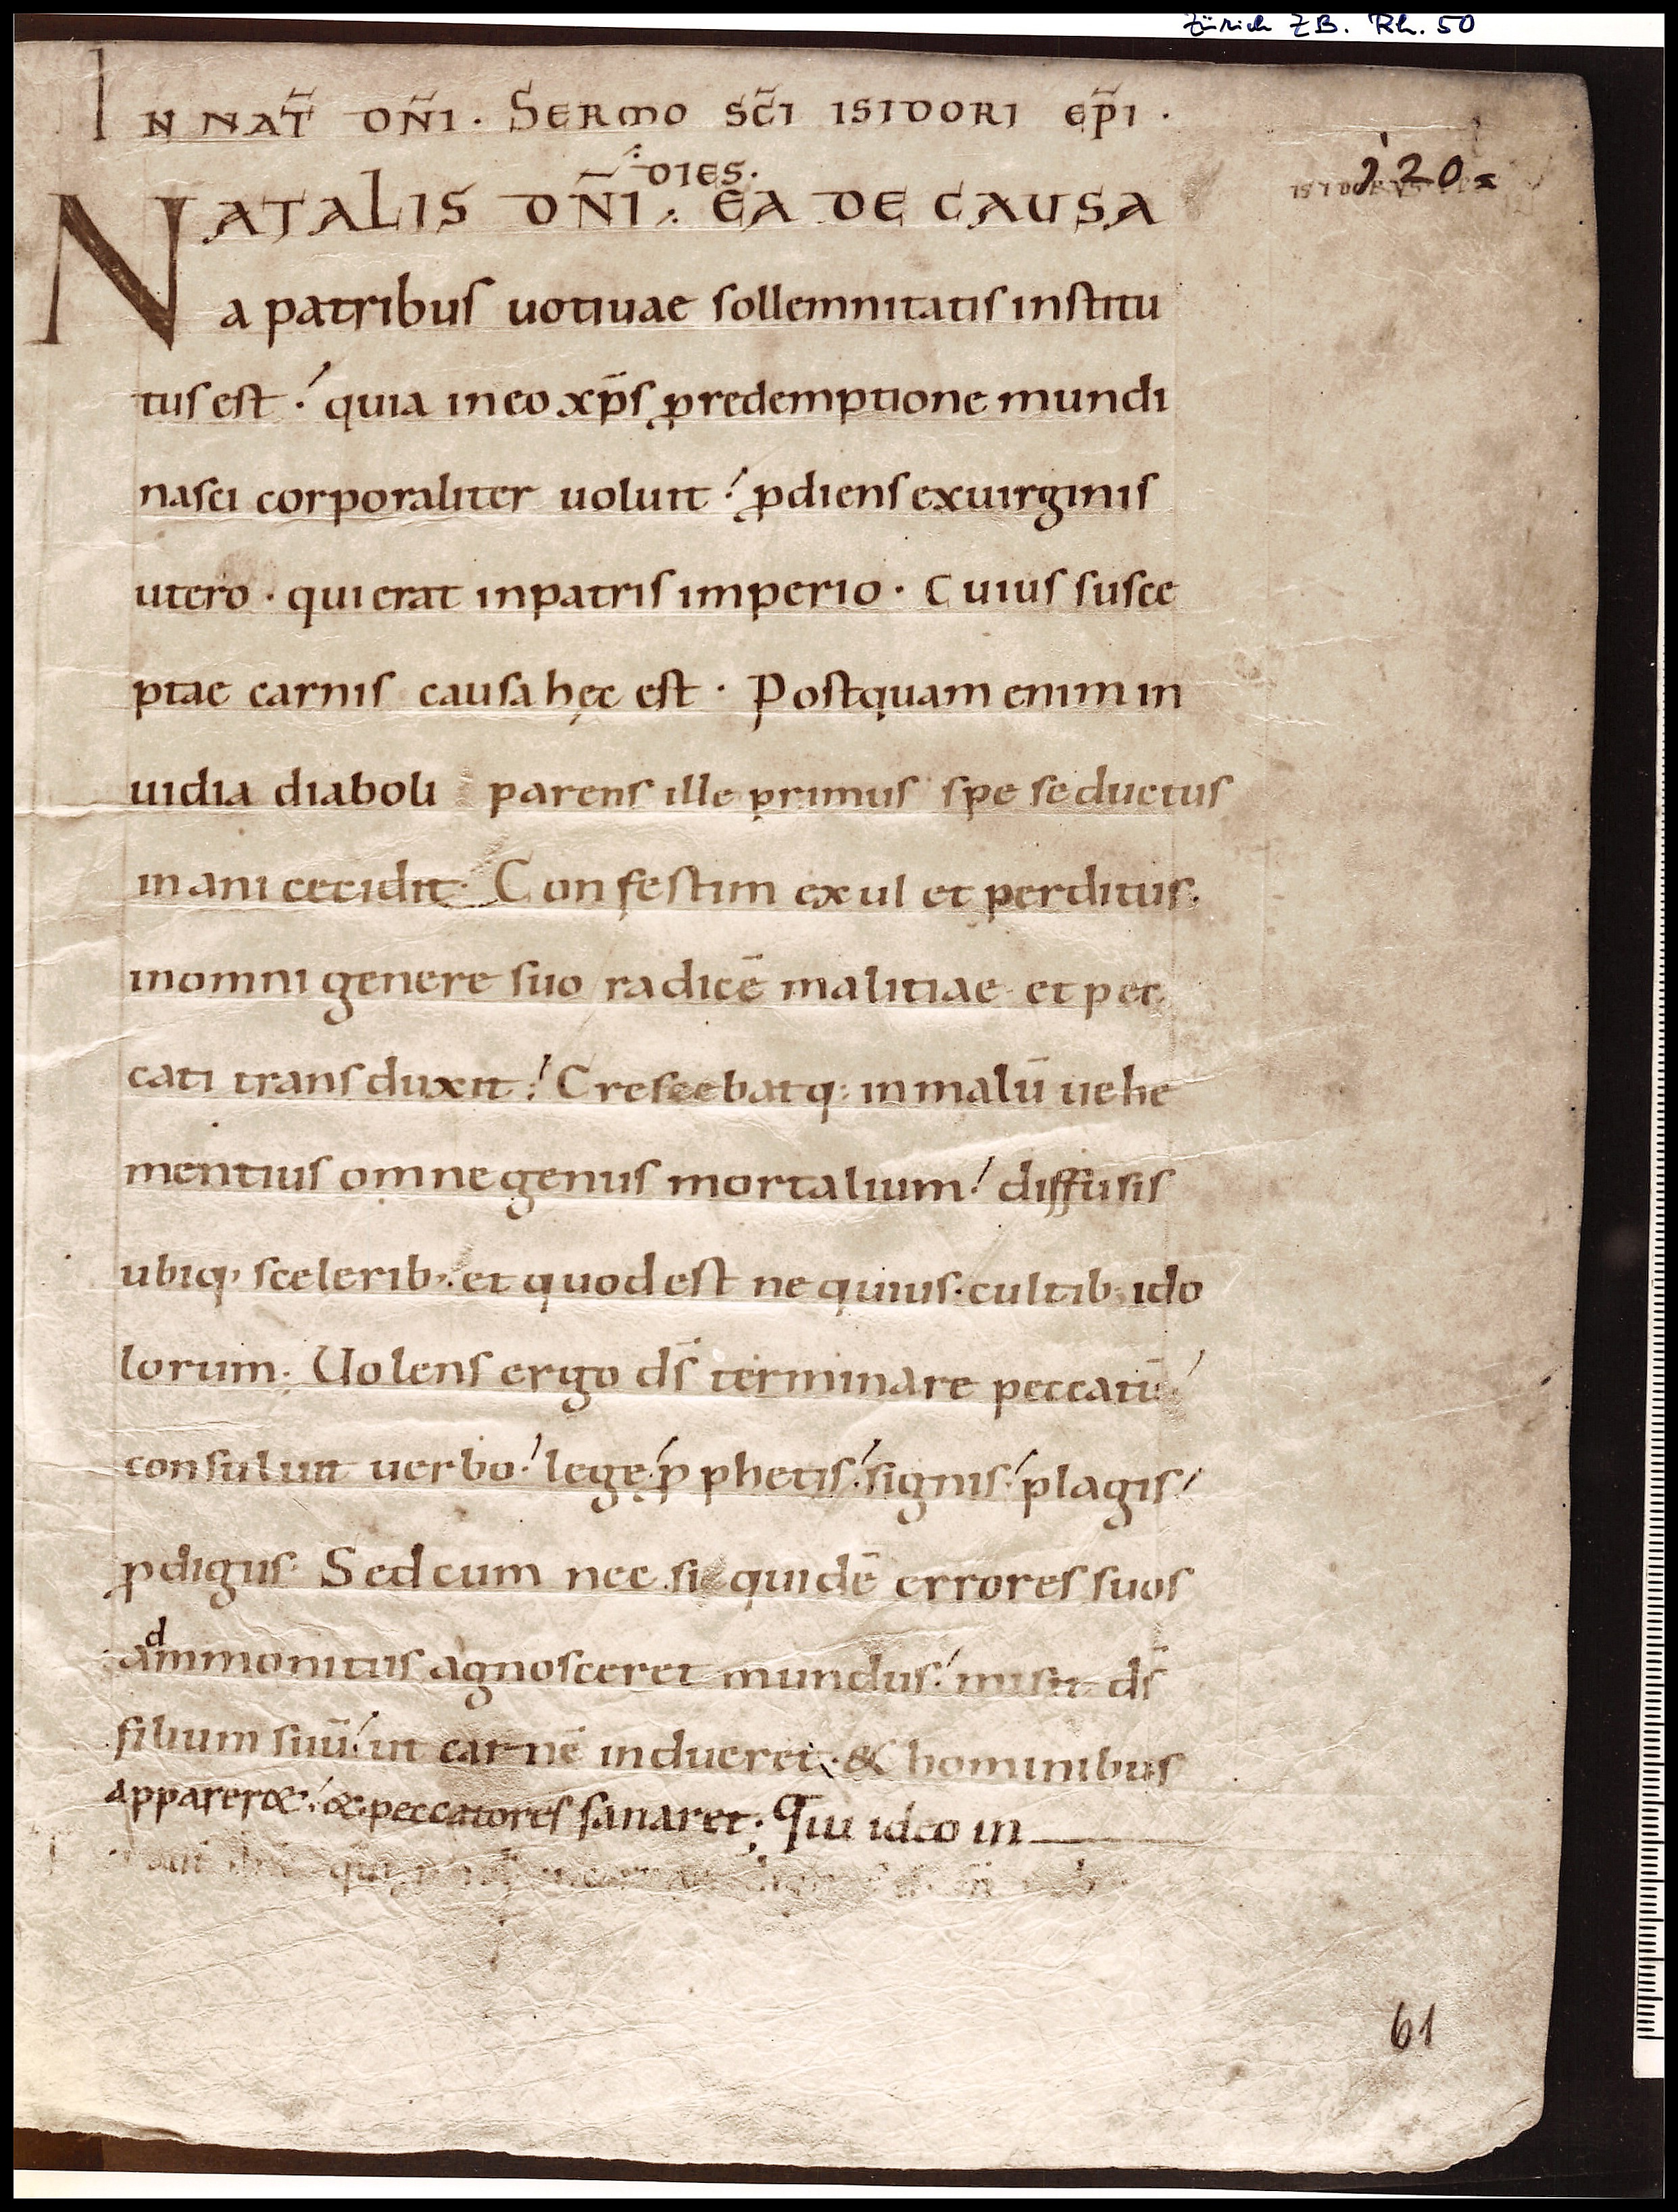 Zürich ZB. Rh. 50
IN NAT̃ DÑI. SERMO SC̃I ISIDORI EP̃I.
120
DIES.
NATALIS DÑI. EA DE CAUSA
a patribus uotiuae sollemnitatis institu
tus est. quia in eo xp̄s ꝓ redemptione mundi
nasci corporaliter uoluit. ꝓdiens ex uirginis
utero. qui erat in patris imperio. Cuius susce
ptae carnis causa hęc est. Postquam enim in
uidia diaboli parens ille primus spe seductus
inani cecidit. Confestim exul et perditus.
in omni genere suo radicē malitiae et pec
cati transduxit. Crescebatq: in malū uehe
mentius omne genus mortalium. diffusis
ubiq, scelerib; et quod est nequius. cultib; ido
lorum. Uolens ergo ds̄ terminare peccatū.
consuluit uerbo. lege. ꝓphetis. signis. plagis.
ꝓdigiis. Sed cum nec si quidē errores suos
d
ammonitus agnosceret mundus. misit ds̄
filium suū. ut carnē indueret. & hominibus
apparer&. & peccatores sanaret; Qui ideo in
61